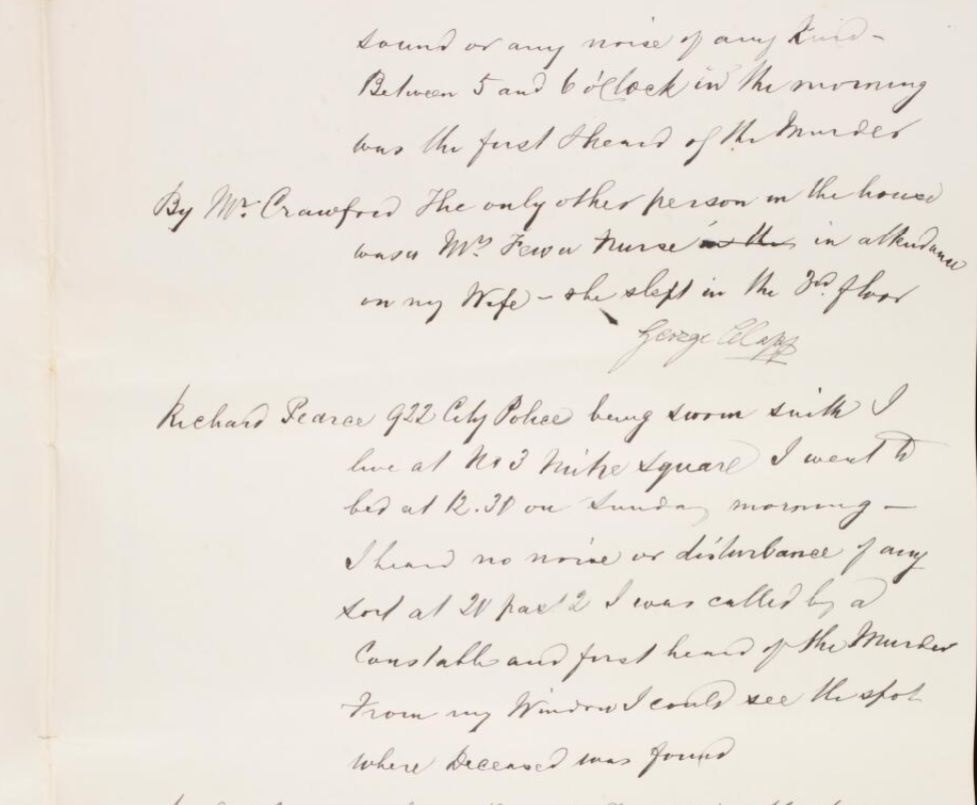 sound or any noise of any Kind -
Between 5 and 6 o'Clock in the morning
was the first I heard of the Murder
By Mr. Crawford The only other person in the house
was a Mrs Few a Nurse in the in attendance
on my Wife - she slept in the 3rd. floor
George Clapp
Richard Pearce 922 City Police being sworn saith I
live at No 3 Mitre Square I went to
bed at 12.30 on Sunday morning -
I heard no noise or disturbance of any
sort at 20 past 2 I was called by a
Constable and first heard of the Murder
From my Window I could see the spot
where Deceased was found